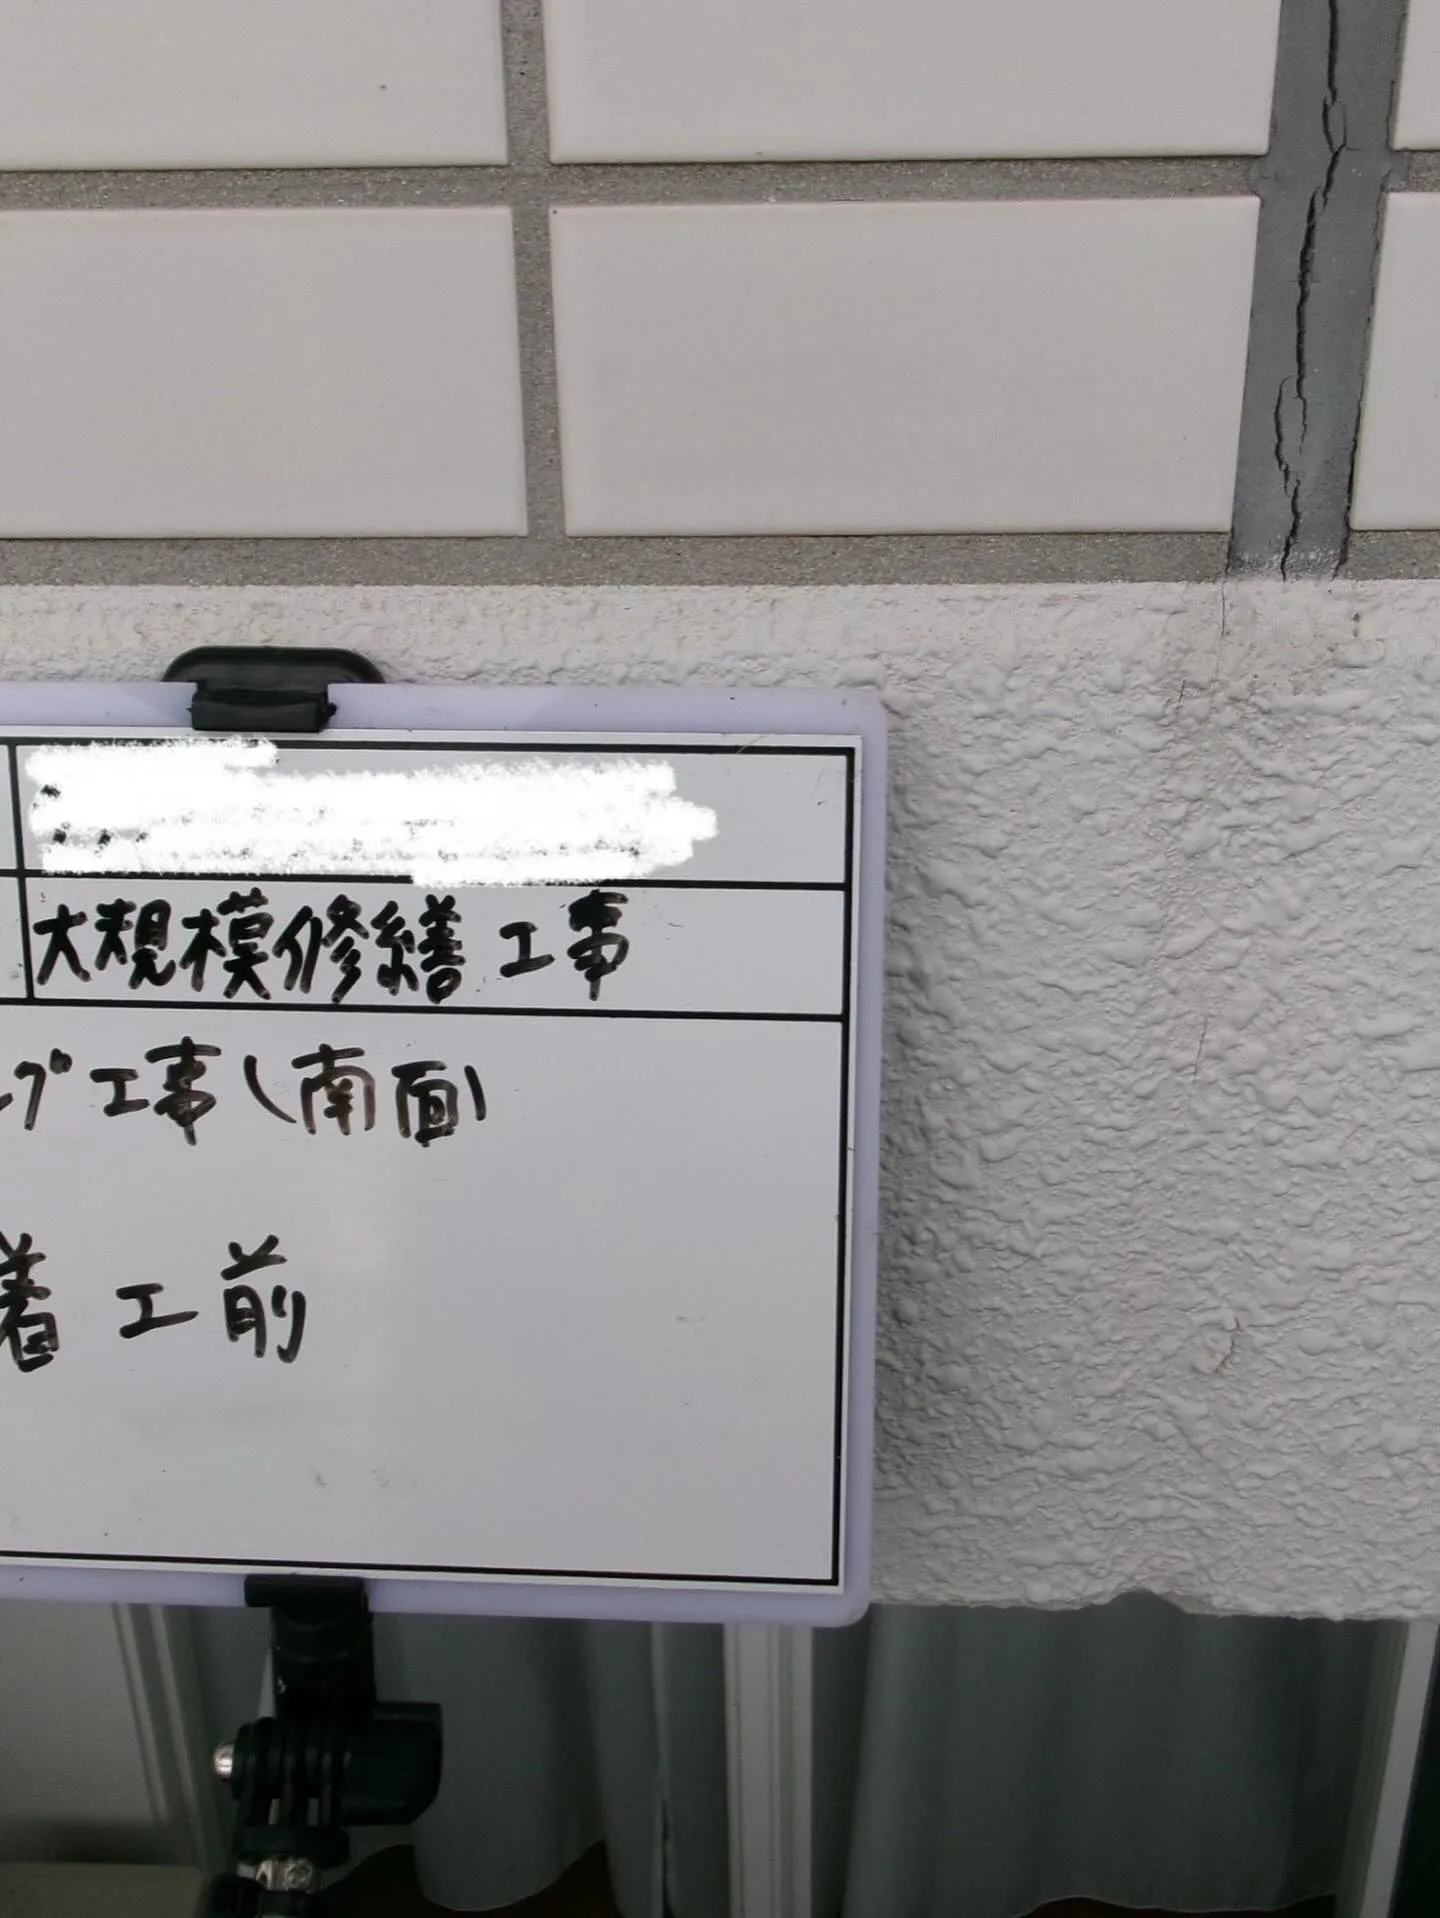 大規模修繕工事
グ工事(南面)
着工前